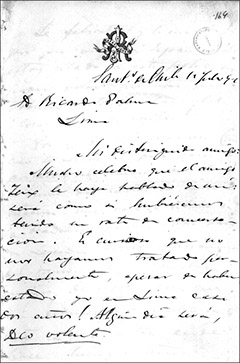 164
Sant.º de Chile 1º Feb.
D. Ricardo Palma
Lima
Mi distinguido amigo:
Mucho celebro que el amigo
le haya hablado de mí
será como si hubiéramos
tenido un rato de conversa-
cion. Es curioso que no
nos hayamos tratado per-
sonalmente, apesar de haber
estado yo en Lima casi
dos años! Algun dia será,
Deo volente.